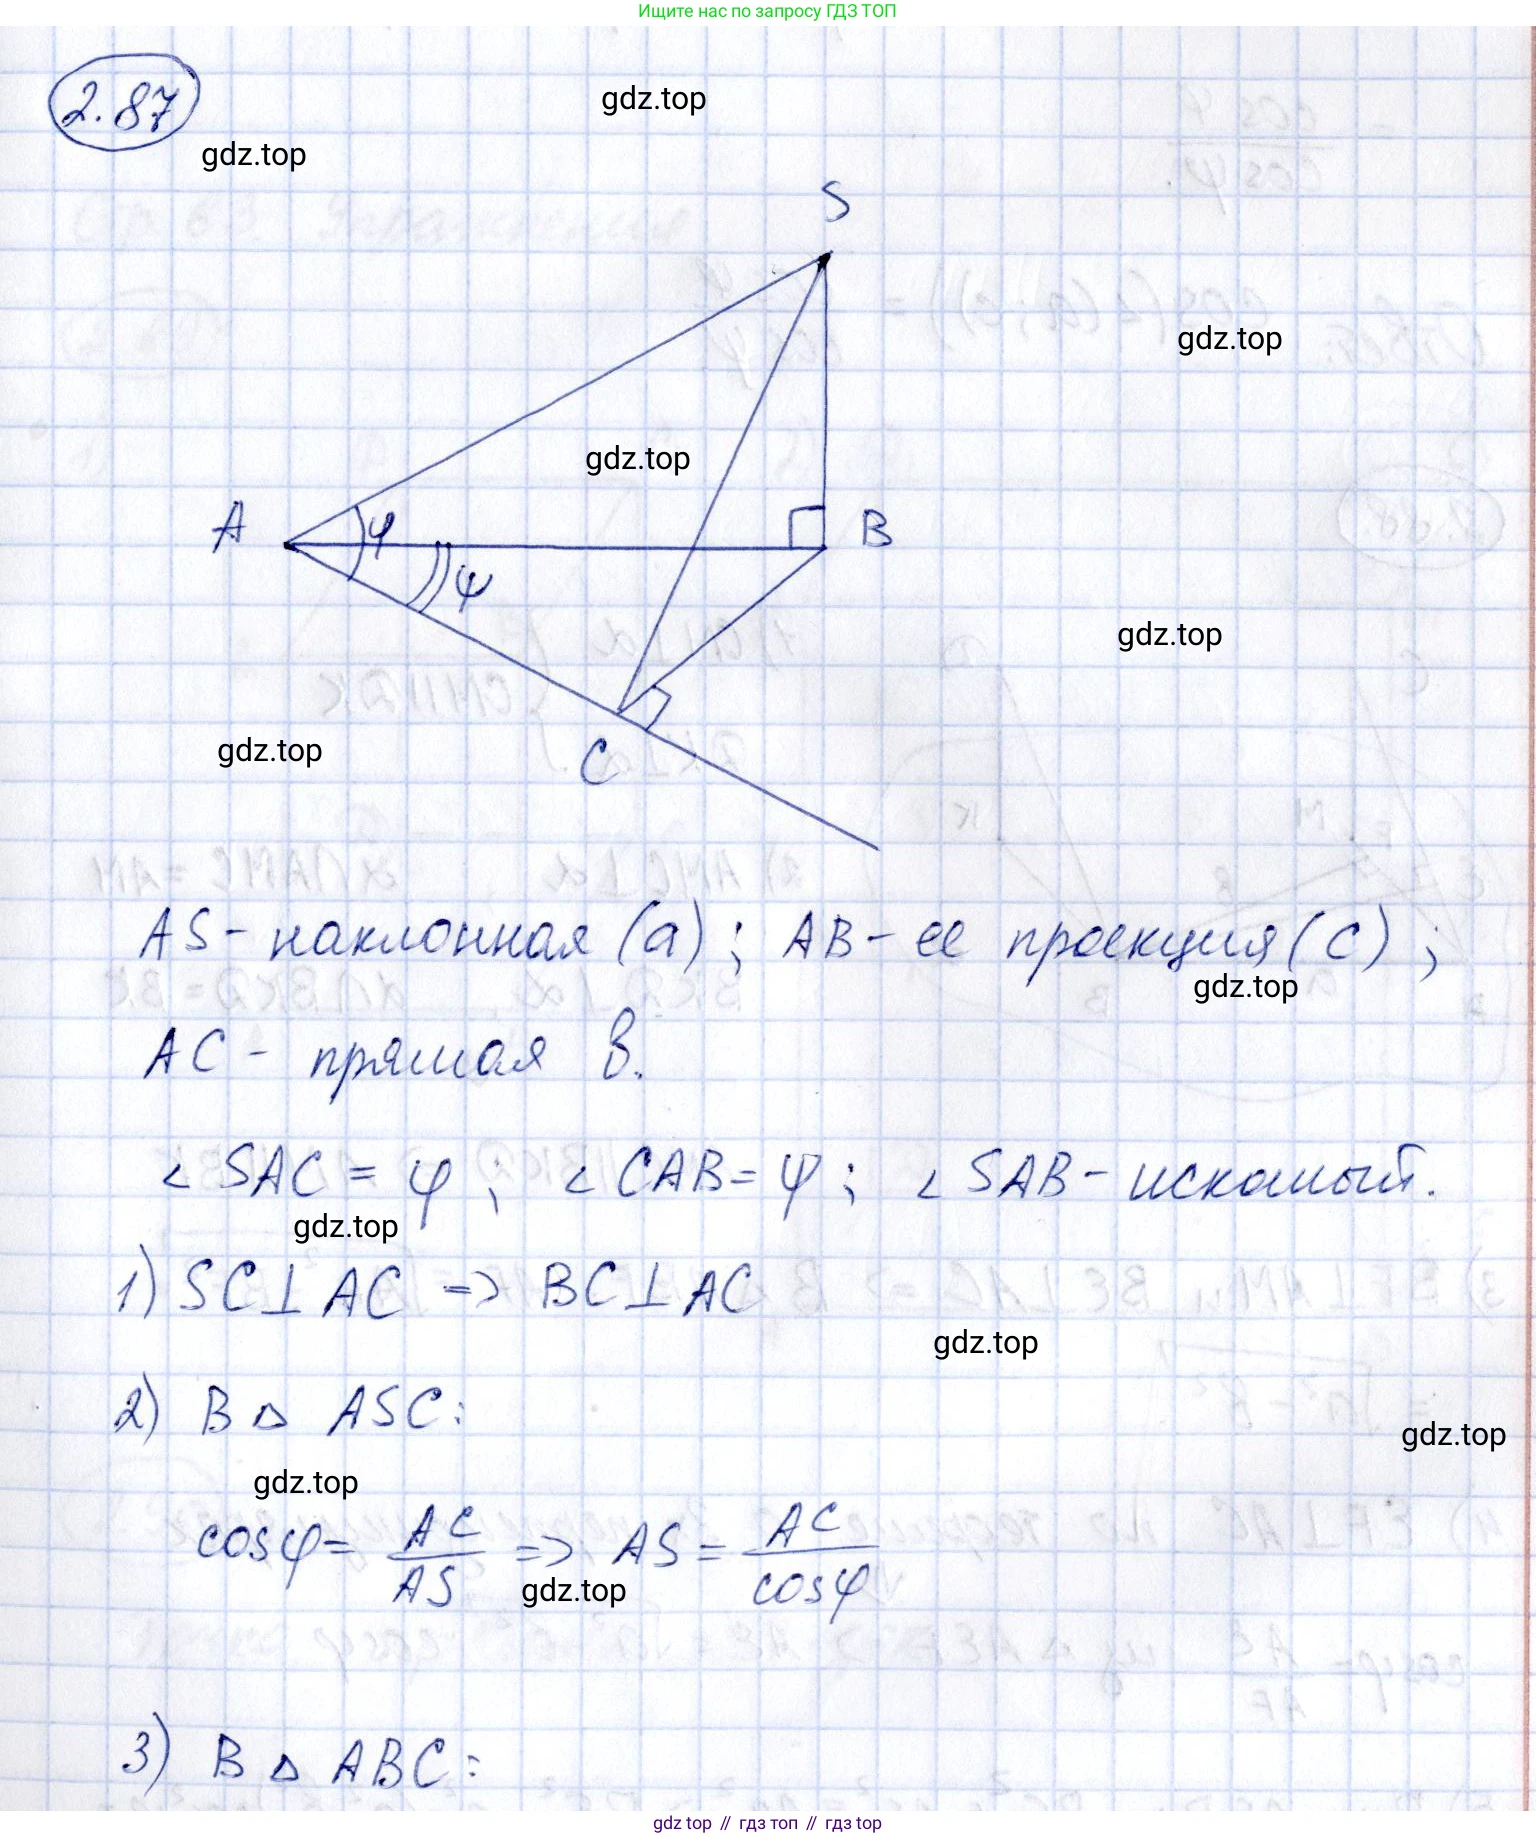 Ищите нас по запросу ГДЗ ТОП
2.87
gdz.top
gdz.top
S
gdz.top
gdz.top
A
φ
B
ψ
gdz.top
gdz.top
C
AS - наклонная (a); AB - ее проекция (c);
gdz.top
AC - прямая b.
∠SAC = φ; ∠CAB = ψ; ∠SAB - искомый.
gdz.top
1) SC⊥AC => BC⊥AC
gdz.top
2) В △ ASC:
gdz.top
gdz.top
cosφ = AC/AS => AS = AC/cosφ
gdz.top
3) В △ ABC:
gdz.top // гдз топ // гдз top